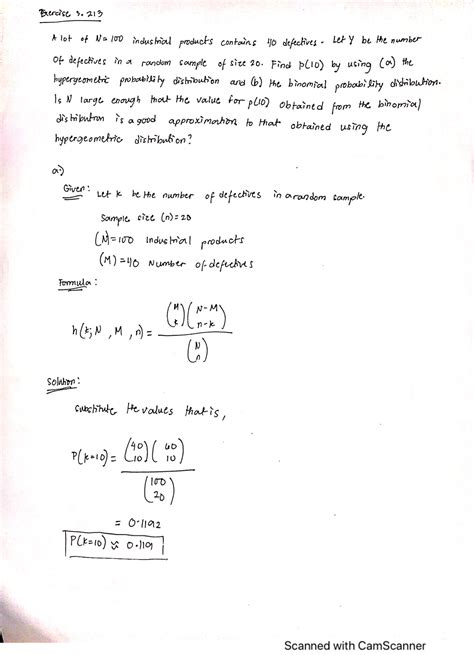 Exercise 3.213
A lot of N=100 industrial products contains 40 defectives. Let Y be the number
of defectives in a random sample of size 20. Find p(10) by using (a) the
hypergeometric probability distribution and (b) the binomial probability distribution.
Is N large enough that the value for p(10) obtained from the binomial
distribution is a good approximation to that obtained using the
hypergeometric distribution?
a)
Given: Let k be the number of defectives in a random sample.
Sample size (n)=20
(N)=100 Industrial products
(M)=40 Number of defectives
Formula:
h(k; N, M, n) = (M k)(N-M n-k) / (N n)
Solution:
Substitute the values that is,
P(k=10) = (40 10)(60 10) / (100 20)
= 0.1192
P(k=10) ≈ 0.1191
Scanned with CamScanner